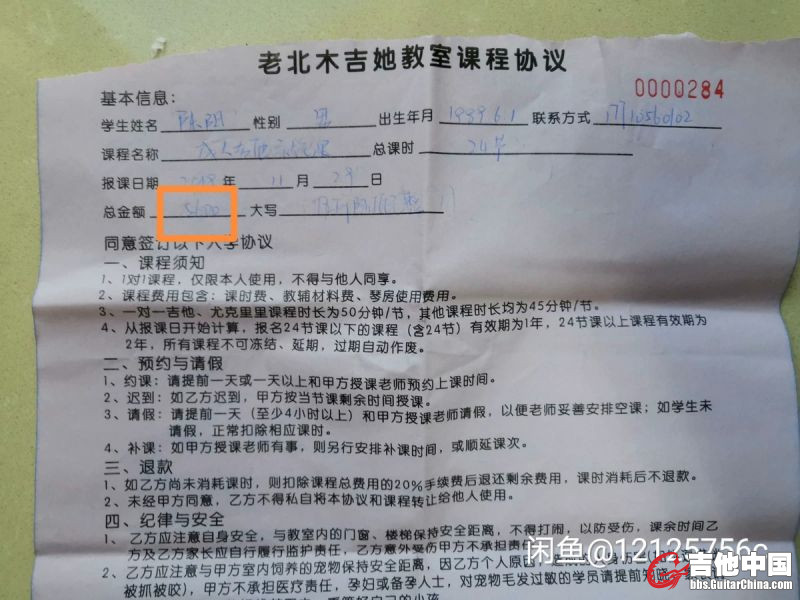 老北木吉她教室课程协议
0000284
基本信息：
学生姓名 陈阳 性别 男 出生年月 1989.6.1 联系方式
课程名称 总课时 24节
报课日期 2018年 11月 29日
总金额 大写
同意签订以下入学协议
一、课程须知
1、1对1课程，仅限本人使用，不得与他人同享。
2、课程费用包含：课时费、教辅材料费、琴房使用费用。
3、一对一吉他、尤克里里课程时长为50分钟/节，其他课程时长均为45分钟/节。
4、从报课日开始计算，报名24节课以下的课程（含24节）有效期为1年，24节课以上课程有效期为
2年，所有课程不可冻结、延期，过期自动作废。
二、预约与请假
1、约课：请提前一天或一天以上和甲方授课老师预约上课时间。
2、迟到：如乙方迟到，甲方按当节课剩余时间授课。
3、请假：请提前一天（至少4小时以上）和甲方授课老师请假，以便老师妥善安排空课；如学生未
请假，正常扣除相应课时。
4、补课：如甲方授课老师有事，则另行安排补课时间，或顺延课次。
三、退款
1、如乙方尚未消耗课时，则扣除课程总费用的20%手续费后退还剩余费用，课时消耗后不退款。
2、未经甲方同意，乙方不得私自将本协议和课程转让给他人使用。
四、纪律与安全
1、乙方应注意自身安全，与教室内的门窗、楼梯保持安全距离，不得打闹，以防受伤，课余时间乙
方及乙方家长应自行履行监护责任，乙方意外受伤甲方不承担责任
2、乙方应注意与甲方室内饲养的宠物保持安全距离，因乙方个人原因
被抓被咬），甲方不承担医疗责任，孕妇或备孕人士，对宠物毛发过敏的学员请提前知晓
闲鱼@12125756c
吉他中国
bbs.GuitarChina.com